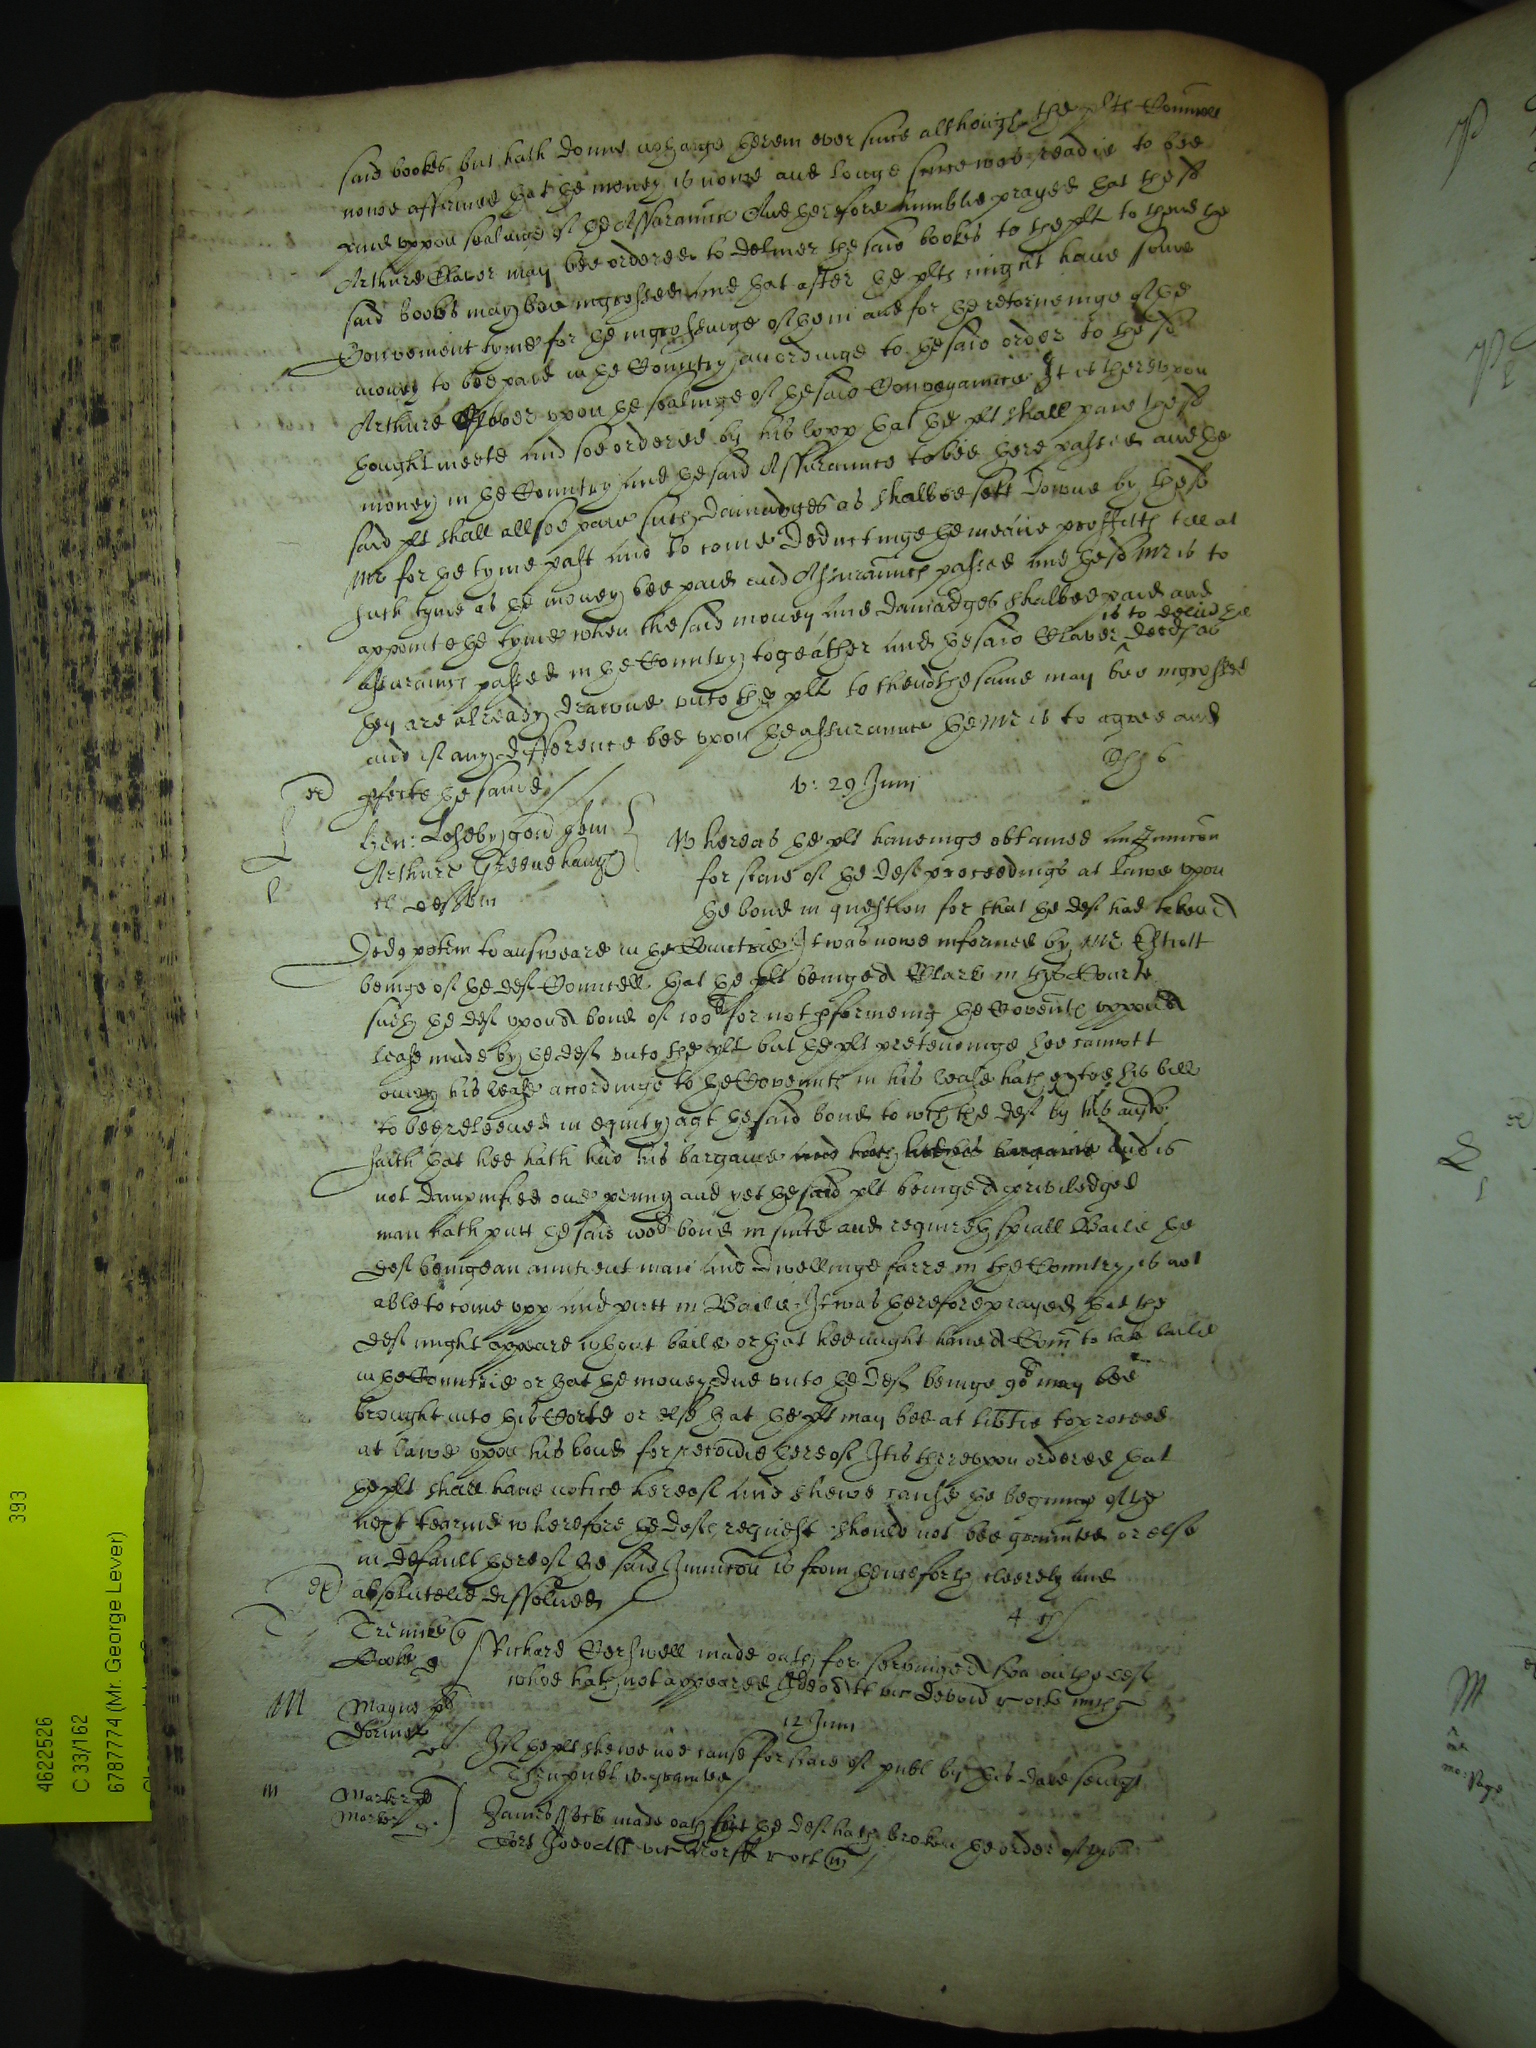 said bookes but hath donne nothinge herein ever since although the plts Councell
nowe affirmed that the money is nowe and longe since was readie to bee
paid uppon sealinge of the Assurance And therefore humblie prayed that the sd
Arthure Claver may bee ordered to deliver the said bookes to the plt to thend the
said bookes may bee ingrossed and that after the plts might have some
Convenient tyme for the ingrossinge of them and for the retorneinge of the
money to bee paid in the Country accordinge to the said order to the sd
Arthure Claver upon the sealinge of the said Conveyance It is thereupon
thought meete and soe ordered by his lopp that the plt shall paie the sd
money in the Country and the said Assurance to bee there passed and the
said plt shall allsoe paie such Damadges as shalbee sett downe by the sd
Mr for the tyme past and to come Deductinge the meane proffitts till at
such tyme as the money bee paid and Assurance passed and the sd Mr is to
appointe the tyme when the said money and Damadges shalbee paid and
assurance passed in the Country togeather and the said Claver is to deliver the deeds as
they are already drawne unto the plt to thend the same may bee ingrossed
and if any difference bee upon the assurance the Mr is to agree and
p'fecte the same
v: 29 Junij
Hen: gent plt
Arthure Greenehaugh
et deft
Whereas the plt haveinge obtained an Iniuncon
for staie of the Defts proceedings at Lawe upon
the bond in question for that the deft had taken a
Ded potem to answeare in the Countrie It was nowe informed by Mr
beinge of the defts Councell that the plt beinge a Clark in this Courte
sueth the deft upon a bond of 100l for not pformeing the Covents uppon a
lease made by the deft unto the plt but the plt pretendinge hee cannott
his lease accordinge to the Covenants in his lease hath exted his bill
to bee releeved in equity agt the said bond to wch the deft by his answ
saith that hee hath had his bargaine And is
not dampnified one penny and yet the said plt beinge a priviledged
man hath putt the said 100l bond in suite and requireth spiall Baile the
deft beinge an auncient man and Dwellinge farre in the Country is not
able to come upp and putt in Baile It was therefore prayed that the
deft might appeare wthout baile or that hee might have a Com to take baile
in the Countrie or that the money due unto the Deft beinge 90l may bee
brought into this Corte or else that the plt may bee at libtie to proceed
at Lawe upon his bond for remedie thereof It is thereupon ordered that
the plt shall have notice hereof and shewe cause the beginninge of the
next tearme wherefore the defts request should not bee graunted or else
in default thereof the said Iniuncon is from henceforth cleerely and
absolutelie dissolved
Richard made oath for servinge a spa on the deft
whoe hath not appeared
12 Junij
If the plt shewe noe cause for staie of publ by this daie
Then publ is graunted
Marker plt
Marker
James made oath that the deft hath broken the order of this
Corte
393
4622526
C 33/162
6787774 (Mr. George Lever)